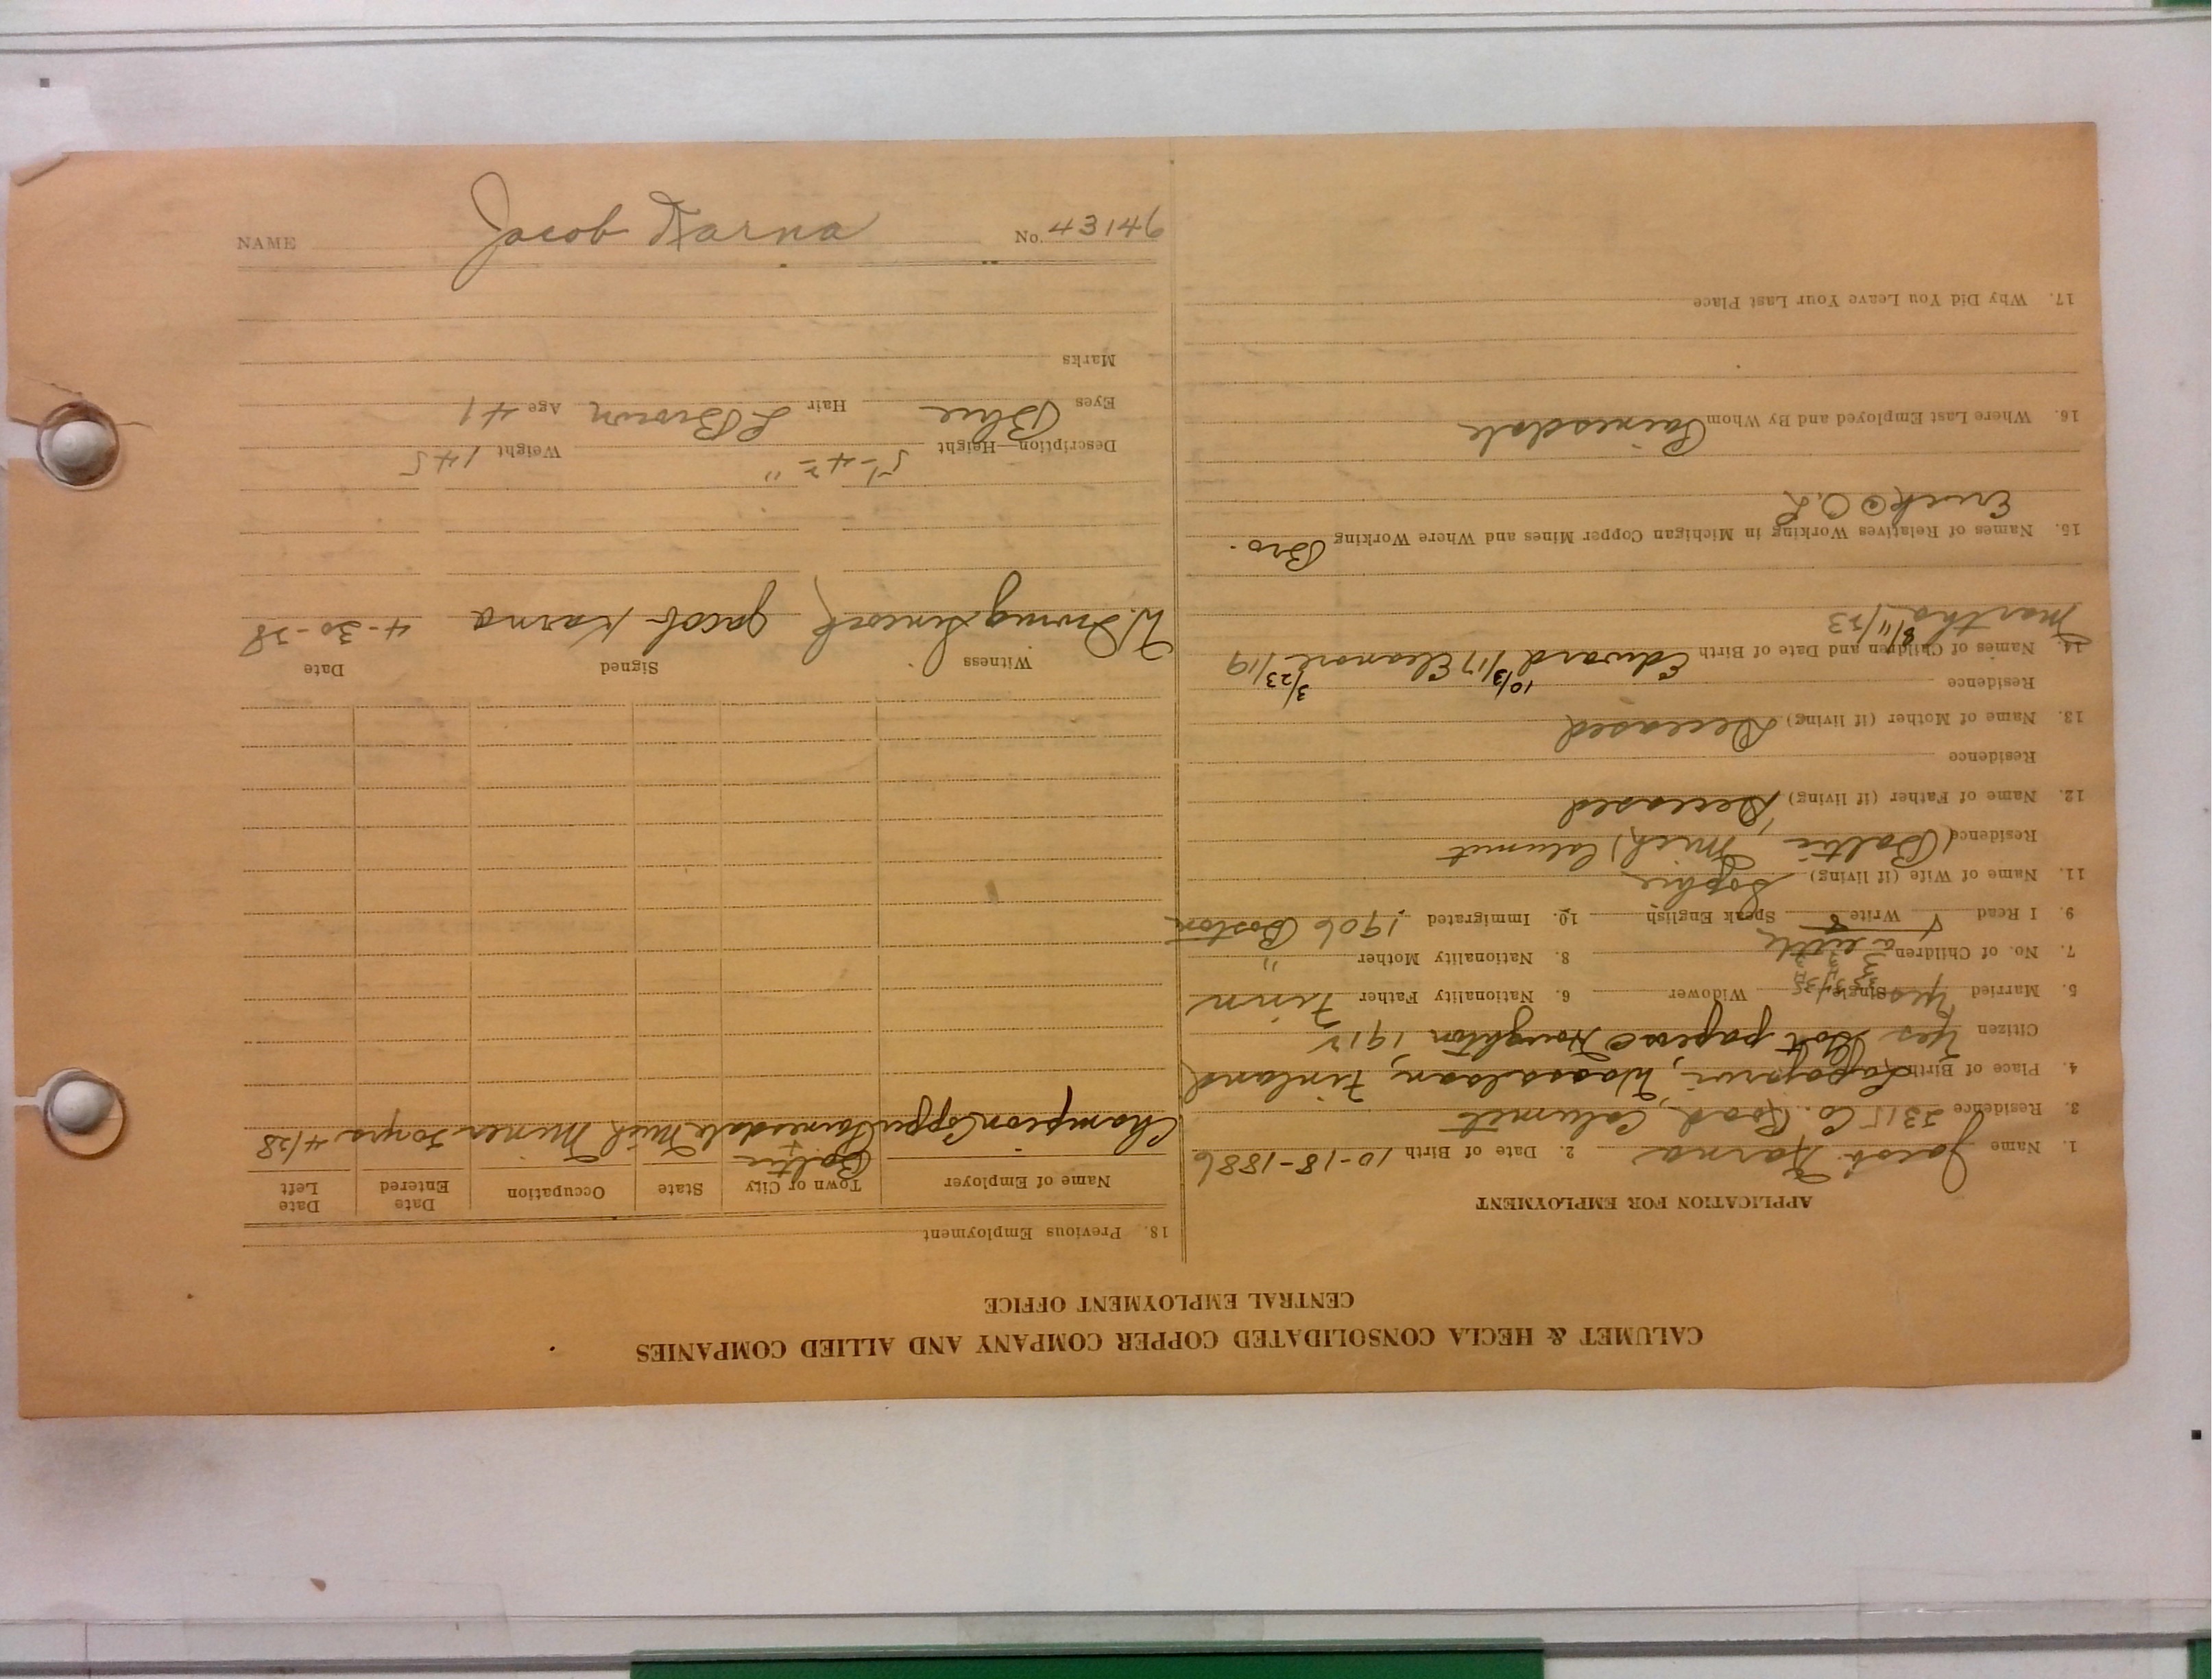 CALUMET & HECLA CONSOLIDATED COPPER COMPANY AND ALLIED COMPANIES
CENTRAL EMPLOYMENT OFFICE
APPLICATION FOR EMPLOYMENT
1. Name Jacob Karna 2. Date of Birth 10-18-1886
3. Residence Co. Road, Calumet
4. Place of Birth Finland
Citizen Yes Got papers @ Houghton 1917
5. Married Yes Single Widower 6. Nationality Father Finn
7. No. of Children 3 8. Nationality Mother "
a little
9. I Read Write Speak English 10. Immigrated 1906 Boston
11. Name of Wife (if living) Sophie
Residence (Baltic Mich) Calumet
12. Name of Father (if living) Deceased
Residence
13. Name of Mother (if living) Deceased
Residence
14. Names of Children and Date of Birth Edward 10/3/17 Eleanore 3/23/19
Martha 8/11/23
15. Names of Relatives Working in Michigan Copper Mines and Where Working Bro.
Erick @ O.L
16. Where Last Employed and By Whom Painesdale
17. Why Did You Leave Your Last Place
18. Previous Employment
Name of Employer Town or City State Occupation Date Entered Date Left
Baltic +
Champion Copper Painesdale Mich Miner yrs 4/28
Witness Signed Date
W. Irving Jacob Karna 4-30-28
Description—Height 5'-4 " Weight 145
Eyes Blue Hair L Brown Age 41
Marks
NAME Jacob Karna No. 43146